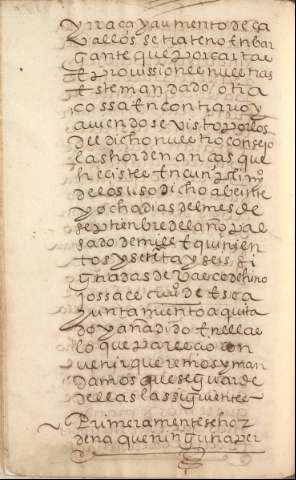 y rraça y aumento de ca
vallos se trate no enbar
gante que por cartas
e provissiones nuestras
este mandado otra
cossa en contrario y
aviendose visto por los
del dicho nuestro consejo
las hordenanças que
heciste en cunplimº
de lo suso dicho a beinte
y ocho dias del mes de
septienbre del año pa
sado de mill e quinien
tos y setenta y seis si
gnadas de
jossa ecivº de esa
juntamiento a quita
do y añadido en ella e
lo que parecio con
venir queremos y man
damos que se guarde
de ellas las siguientes
Primeramente se hor
dena que ninguna per